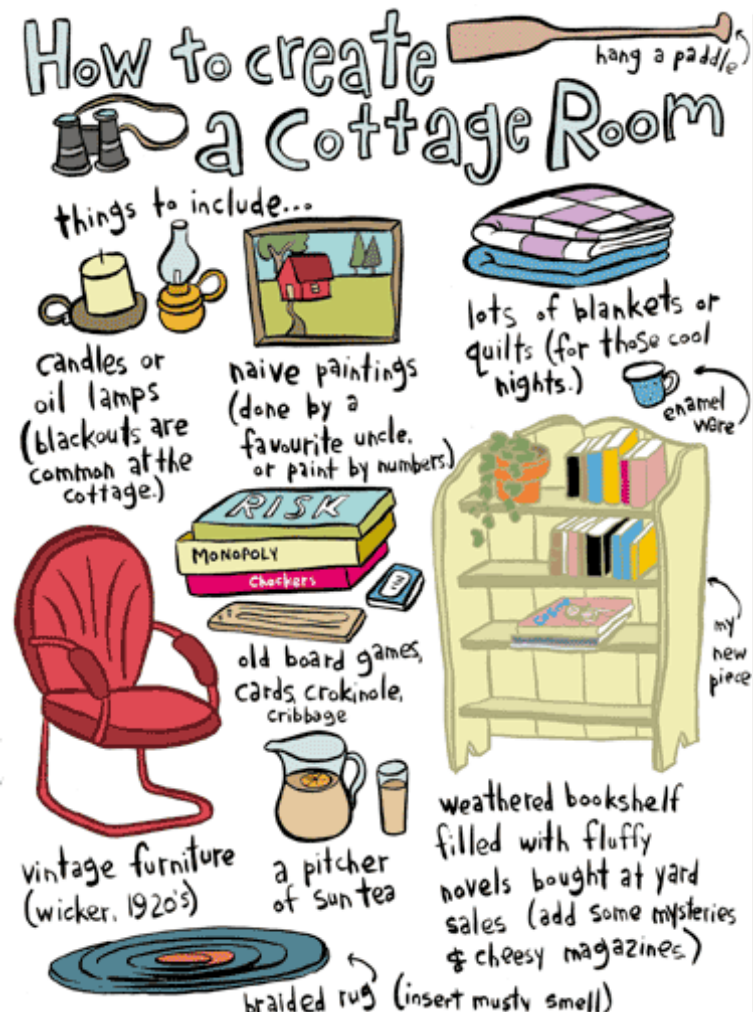 How to create
hang a paddle
a Cottage Room
things to include...
candles or
oil lamps
(blackouts are
common at the
cottage.)
naive paintings
(done by a
favourite uncle.
or paint by numbers.)
lots of blankets or
quilts (for those cool
nights.)
enamel
ware
RISK
MONOPOLY
Checkers
old board games,
cards, crokinole,
cribbage
my
new
piece
vintage furniture
(wicker, 1920's)
a pitcher
of sun tea
weathered bookshelf
filled with fluffy
novels bought at yard
sales (add some mysteries
& cheesy magazines.)
braided rug (insert musty smell)